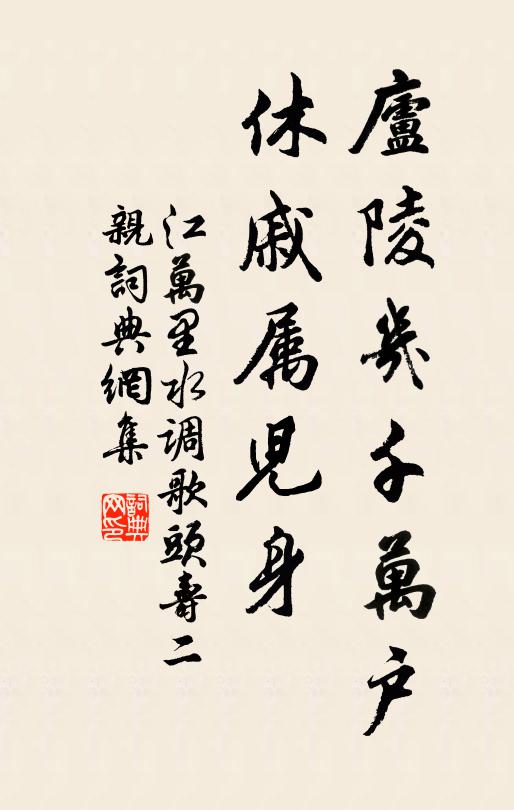 廬陵幾千萬户
休戚属児身
江萬里水调歌頭壽二
親詞典網集
詞典
网印